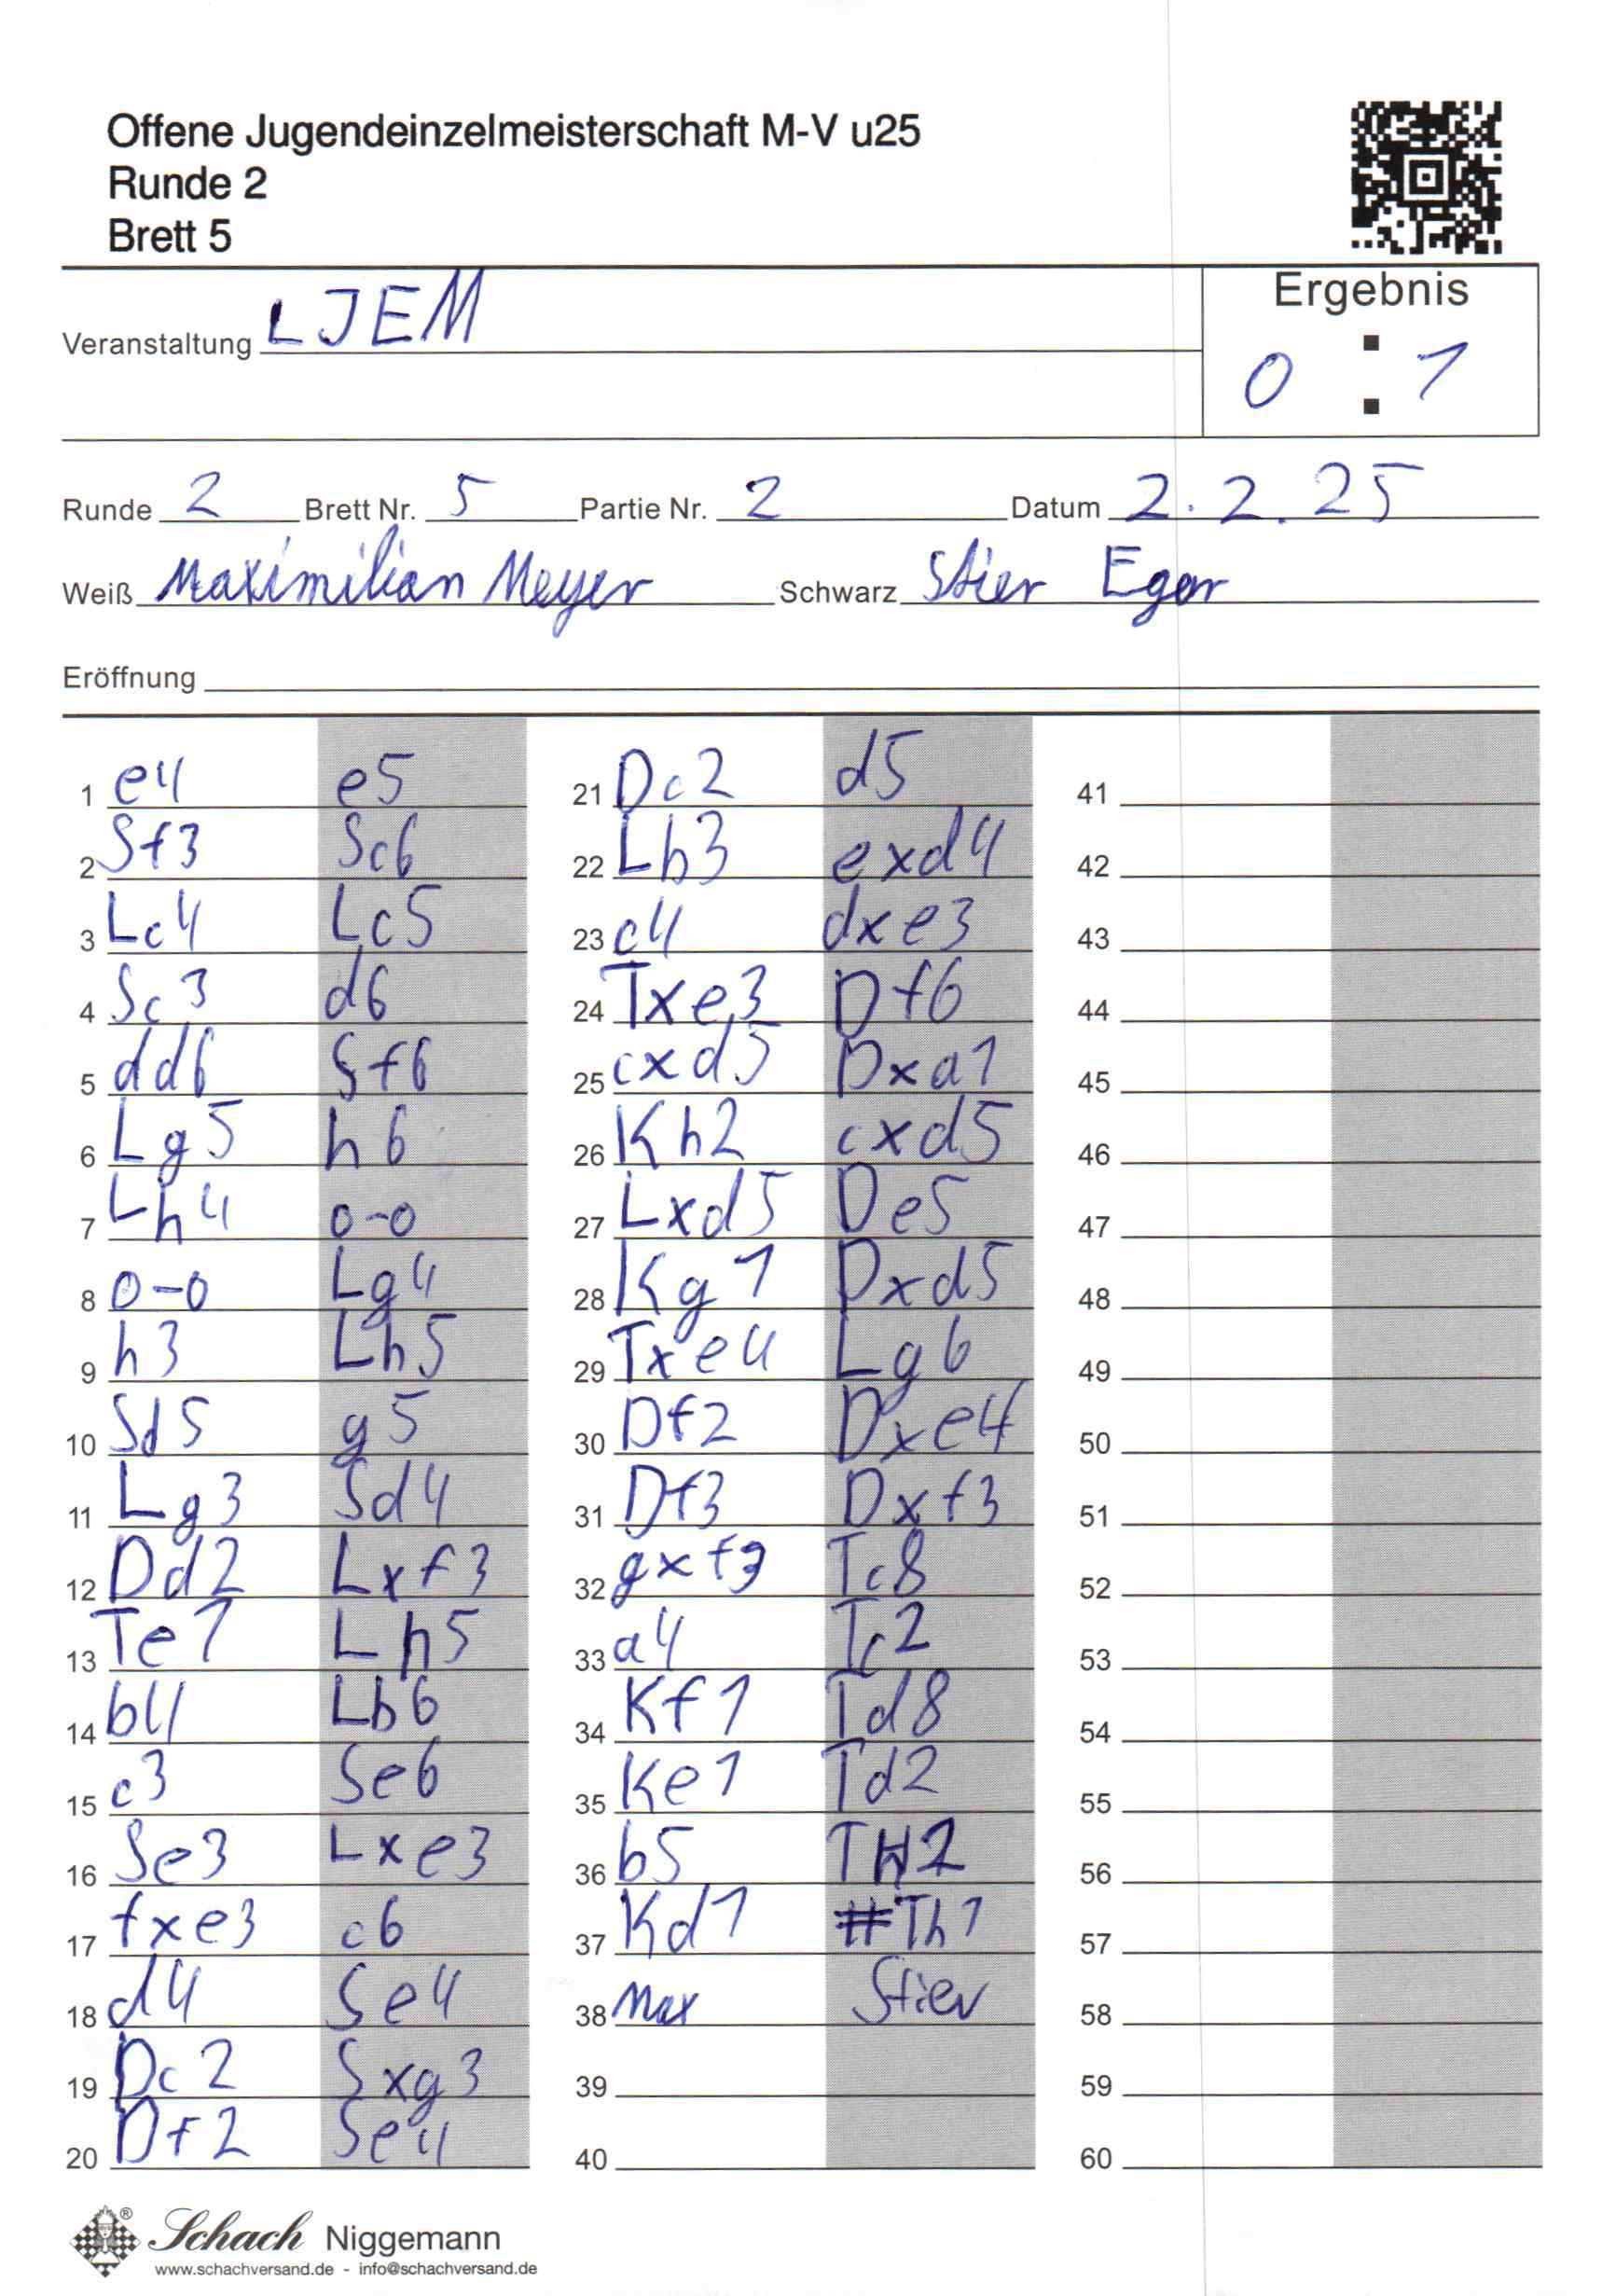 Offene Jugendeinzelmeisterschaft M-V u25
Runde 2
Brett 5
Ergebnis
Veranstaltung LJEM
0 : 1
Runde 2 Brett Nr. 5 Partie Nr. 2 Datum 2.2.25
Weiß Maximilian Meyer Schwarz Stier Egor
Eröffnung
1 e4 e5 21 Dc2 d5 41
2 Sf3 Sc6 22 Lb3 exd4 42
3 Lc4 Lc5 23 c4 dxe3 43
4 Sc3 d6 24 Txe3 Df6 44
5 dd6 Sf6 25 cxd5 Dxa1 45
6 Lg5 h6 26 Kh2 cxd5 46
7 Lh4 0-0 27 Lxd5 De5 47
8 0-0 Lg4 28 Kg1 Dxd5 48
9 h3 Lh5 29 Txe4 Lg6 49
10 Sd5 g5 30 Df2 Dxe4 50
11 Lg3 Sd4 31 Df3 Dxf3 51
12 Dd2 Lxf3 32 gxf3 Tc8 52
13 Te1 Lh5 33 a4 Tc2 53
14 b4 Lb6 34 Kf1 Td8 54
15 c3 Se6 35 Ke1 Td2 55
16 Se3 Lxe3 36 b5 TH2 56
17 fxe3 c6 37 Kd1 #Th1 57
18 d4 Se4 38 Max Stier 58
19 Dc2 Sxg3 39 59
20 Df2 Se4 40 60
Schach Niggemann
www.schachversand.de - info@schachversand.de